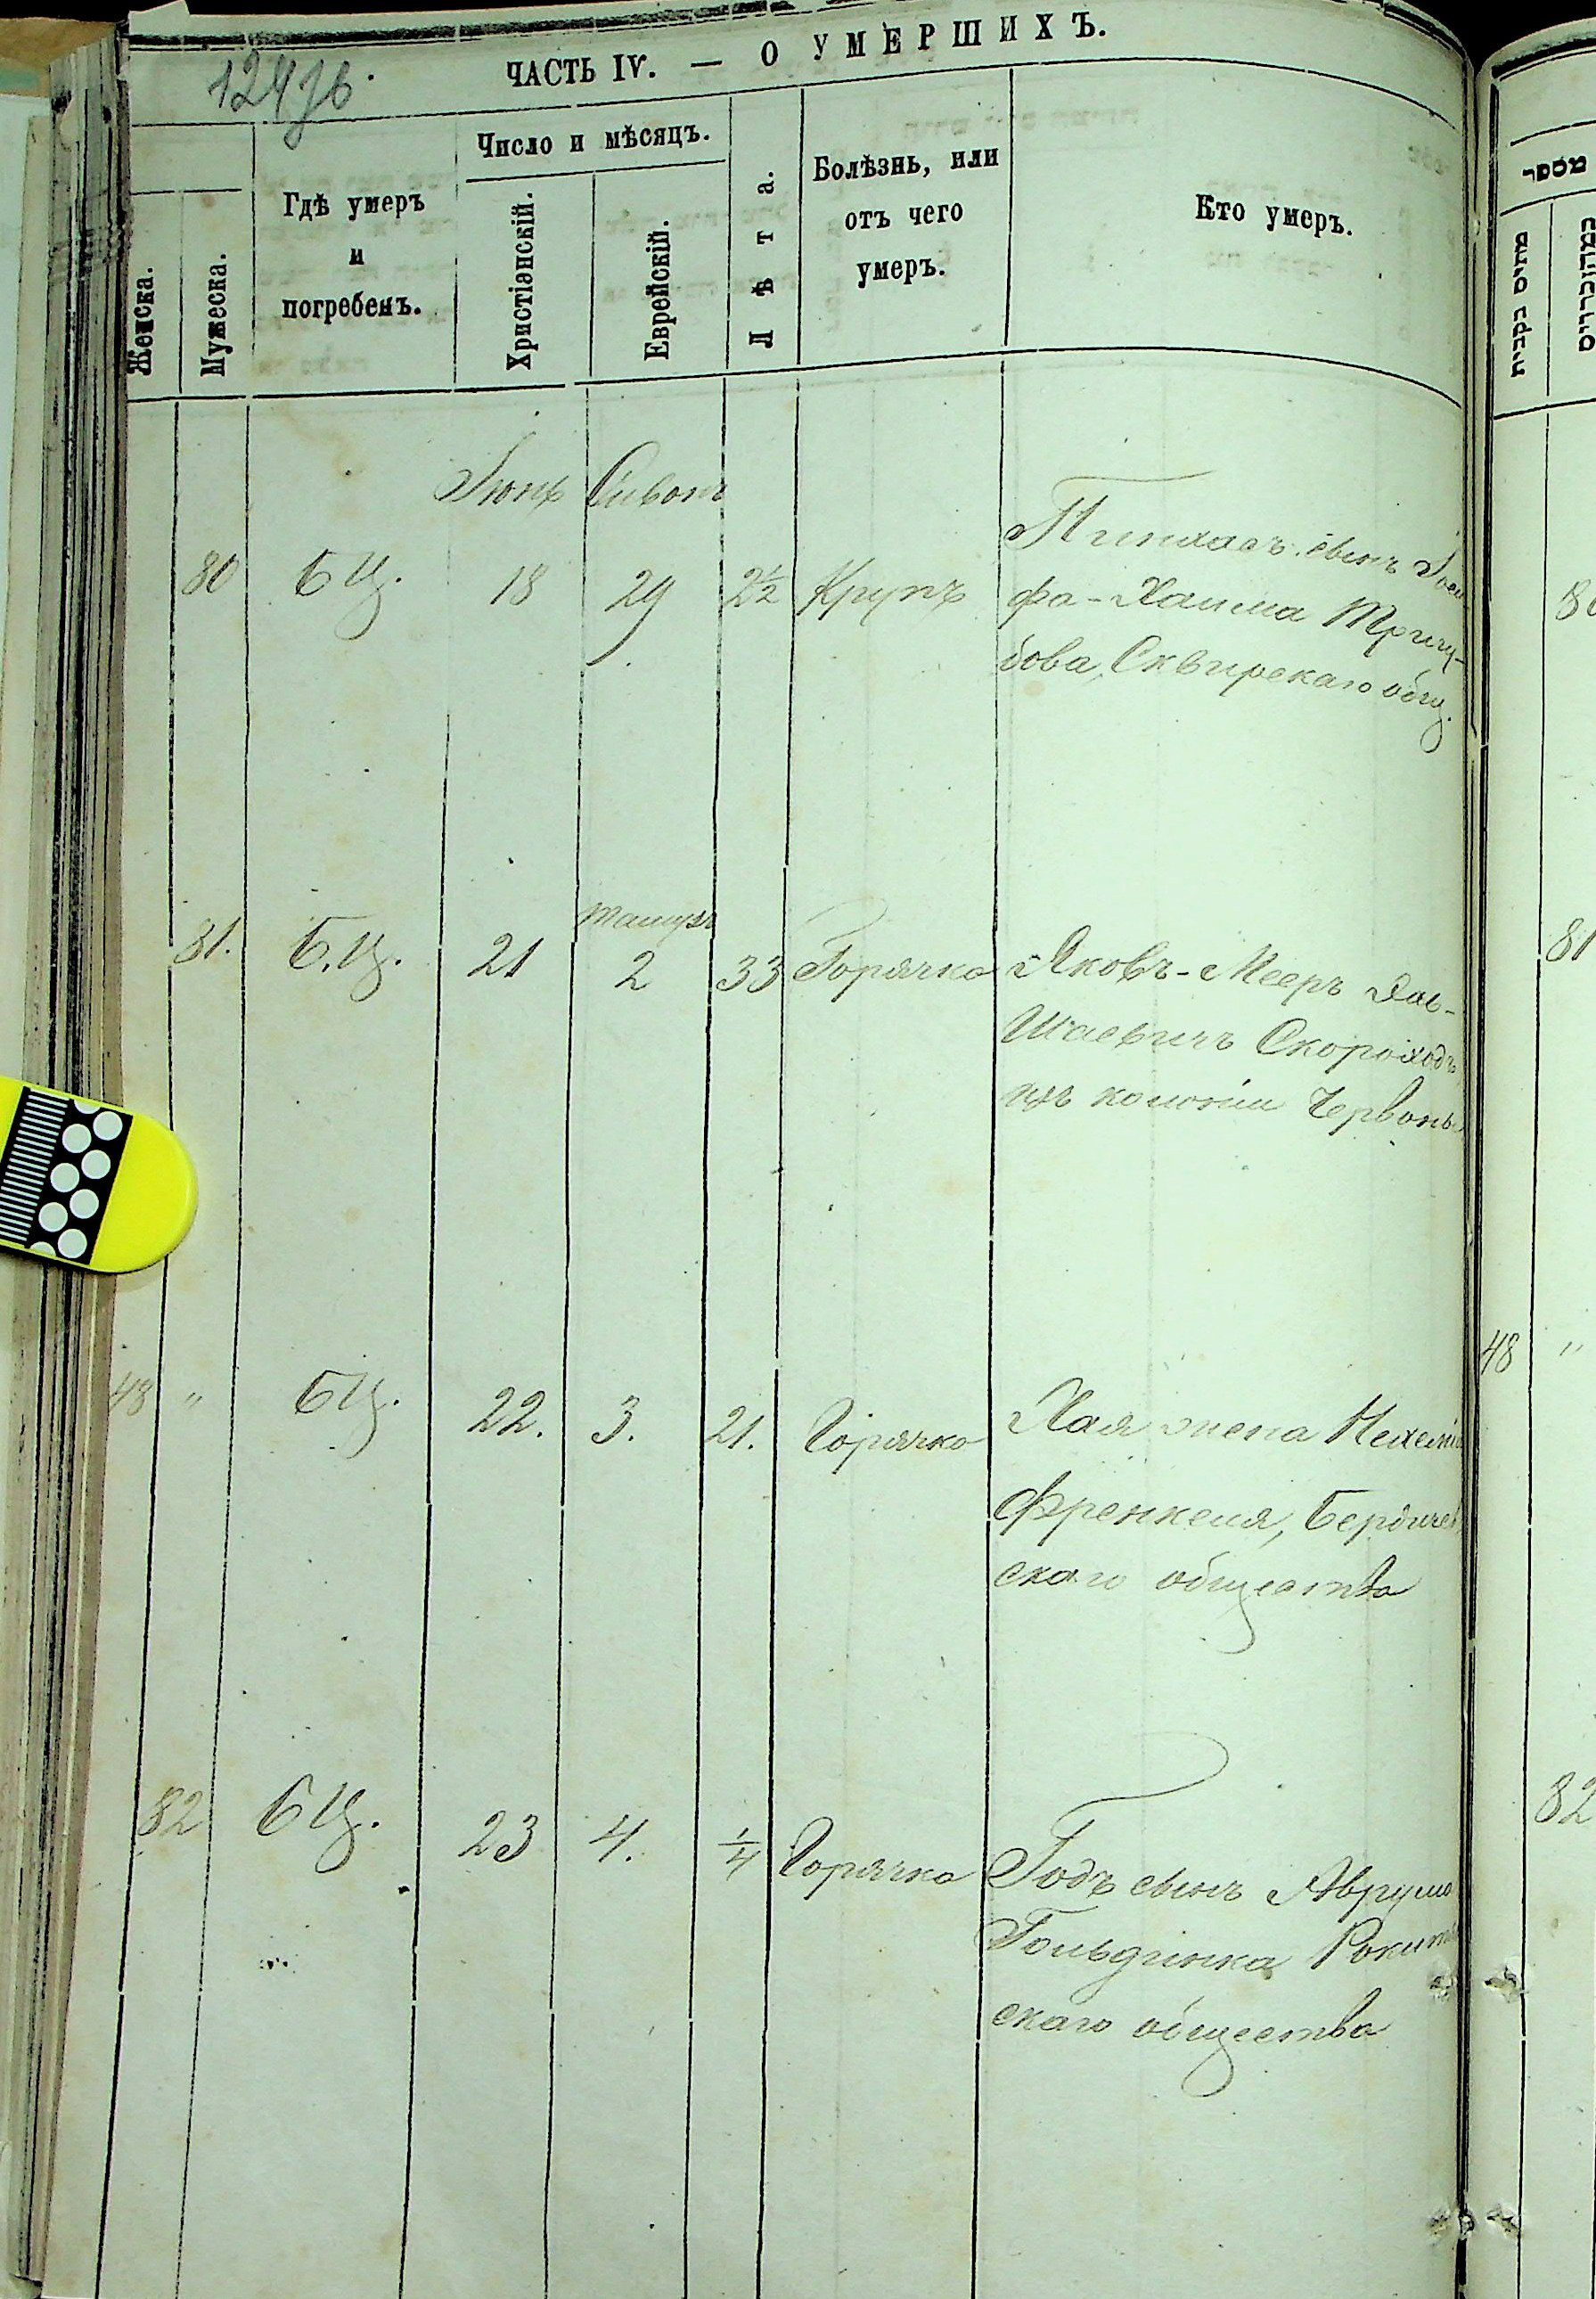 ЧАСТЬ IV. — О УМЕРШИХЪ.
Женска.
Мужеска.
Гдѣ умеръ
и
погребенъ.
Число и мѣсяцъ.
Христіянскій.
Еврейскій.
Лѣта.
Болѣзнь, или
отъ чего
умеръ.
Кто умеръ.
מספר
Іюнь Сивонъ
80 БЦ. 18 29 2½ Крупъ Пинхасъ сынъ Іоси
фа-Хаима Тригу-
бова, Сквирскаго общ.
80
Тамузъ
81. Б.Ц. 21 2 33 Горячка Яковъ-Мееръ
Шаевичъ Скороходъ
изъ колоніи Червонь
81
48 " БЦ. 22. 3. 21. Горячка Хая жена Нехеміи
Френкеля, Бердичев
скаго общества
48 "
82 БЦ. 23 4. ¼ Горячка Годъ сынъ Аврума
Гольдзинка Рокит
скаго общества
82